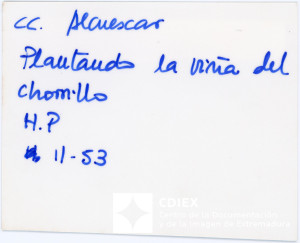 cc. Alcuescar
Plantando la viña del
chorrillo
H.P
11-53
CDIEX